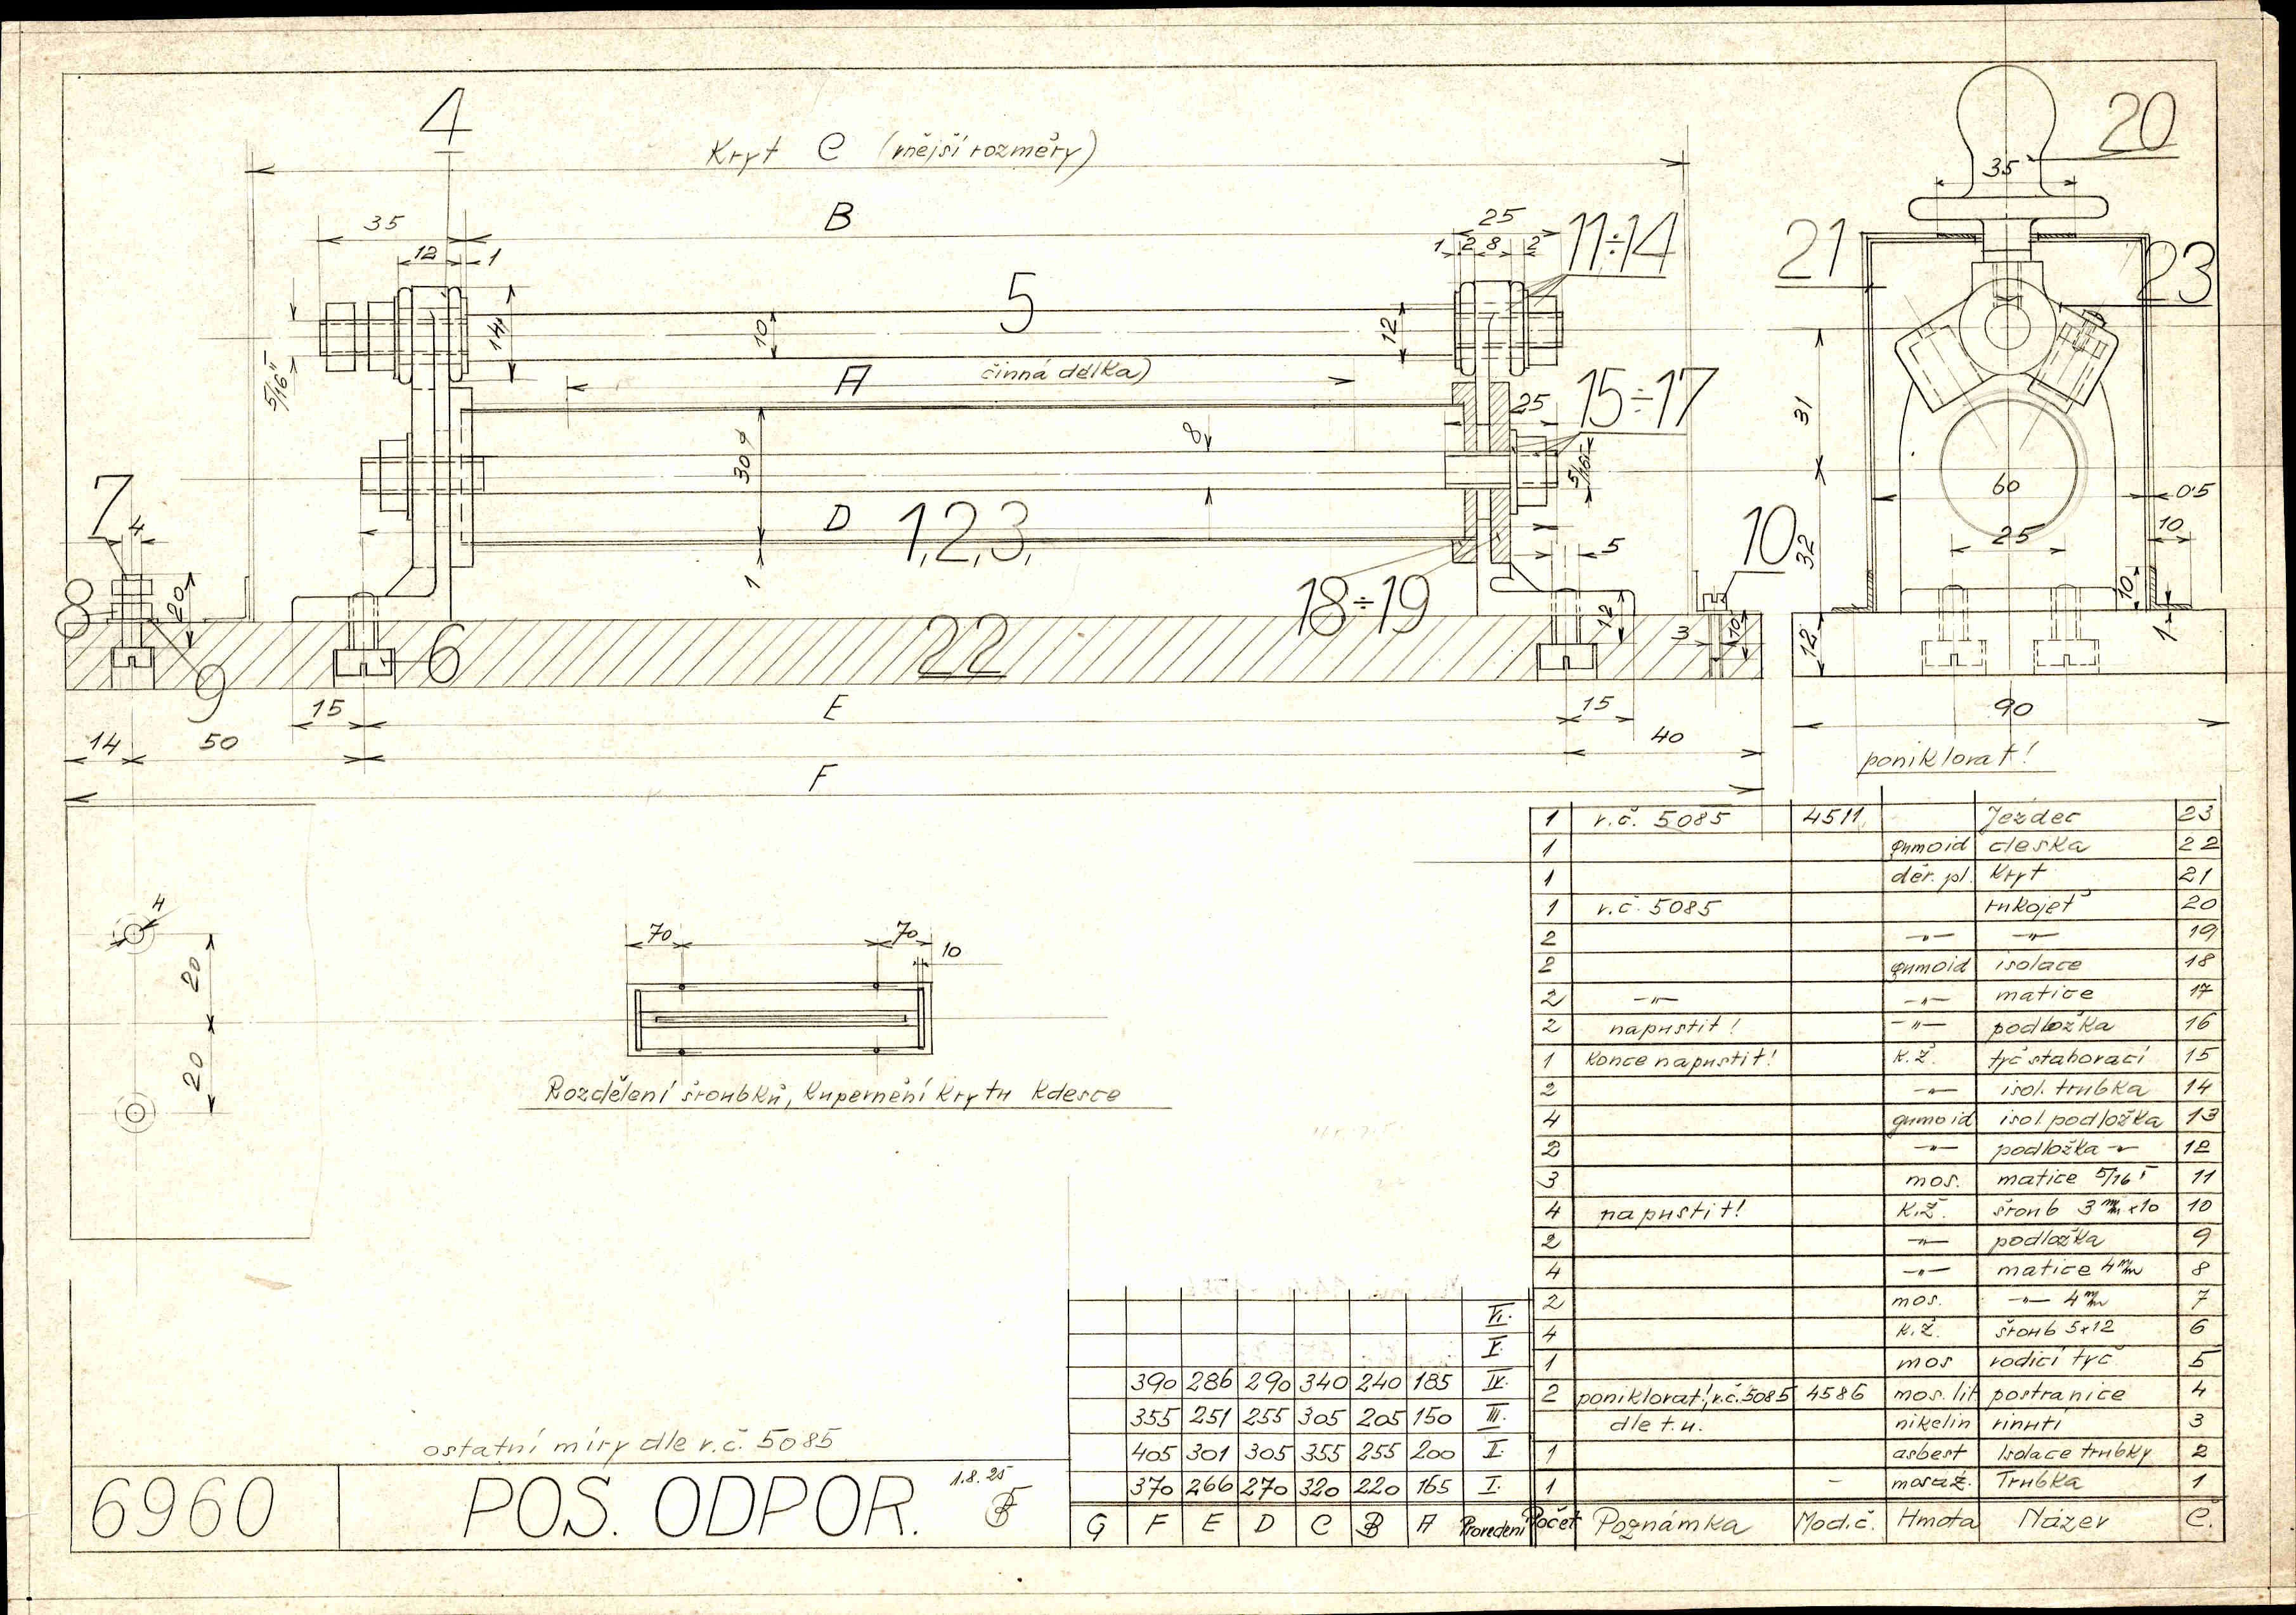 4
Kryt C (vnější rozměry)
20
35
35
B
25
11÷14
21
12
1
1 2 8 2
23
5
5/16"
14
10
12
A
činná délka)
25
15÷17
31
30 φ
8
5/16"
60
05
7
4
D
1,2,3,
10
10
25
5
32
1
8
20
18÷19
12
10
22
3
10
12
1
6
9
15
E
15
90
14
50
40
poniklovat!
F
4
20
20
70
70
10
Rozdělení šroubků, kupevnění krytu kdesce
1 r.č. 5085 4511 Jezdec 23
1 gumoid deska 22
1 děr. pl. Kryt 21
1 r.č. 5085 rukojeť 20
2 —„— —„— 19
2 gumoid isolace 18
2 —„— —„— matice 17
2 napustit! —„— podložka 16
1 Konce napustit! K.Ž. tyč stahovací 15
2 —„— isol. trubka 14
4 gumoid isol. podložka 13
2 —„— podložka —„— 12
3 mos. matice 5/16" 11
4 napustit! K.Ž. šroub 3 m/m x10 10
2 —„— podložka 9
4 —„— matice 4 m/m 8
2 mos. —„— 4 m/m 7
4 K.Ž. šroub 5x12 6
1 mos vodící tyč 5
2 poniklovat!, r.č. 5085 4586 mos. lit postranice 4
dle t.u. nikelin vinutí 3
1 asbest Isolace trubky 2
1 - mosaz. Trubka 1
Počet Poznámka Mod.č. Hmota Název Č.
VI.
V.
390 286 290 340 240 185 IV.
355 251 255 305 205 150 III.
405 301 305 355 255 200 II.
370 266 270 320 220 165 I.
G F E D C B A Provedení
ostatní míry dle r.č. 5085
6960
POS. ODPOR.
1.8.25